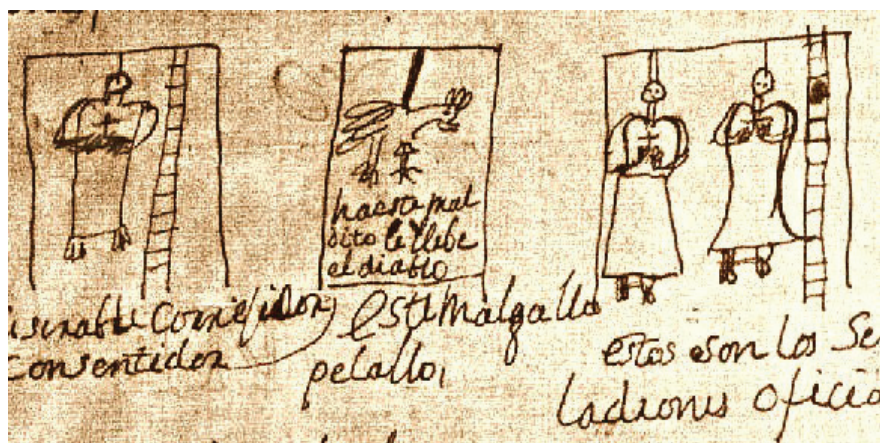 haeste mal
dito le llebe
el diablo
iserable Correjidor
Consentidor
este mal gallo
pelallo,
estos son los Se
ladrones oficia